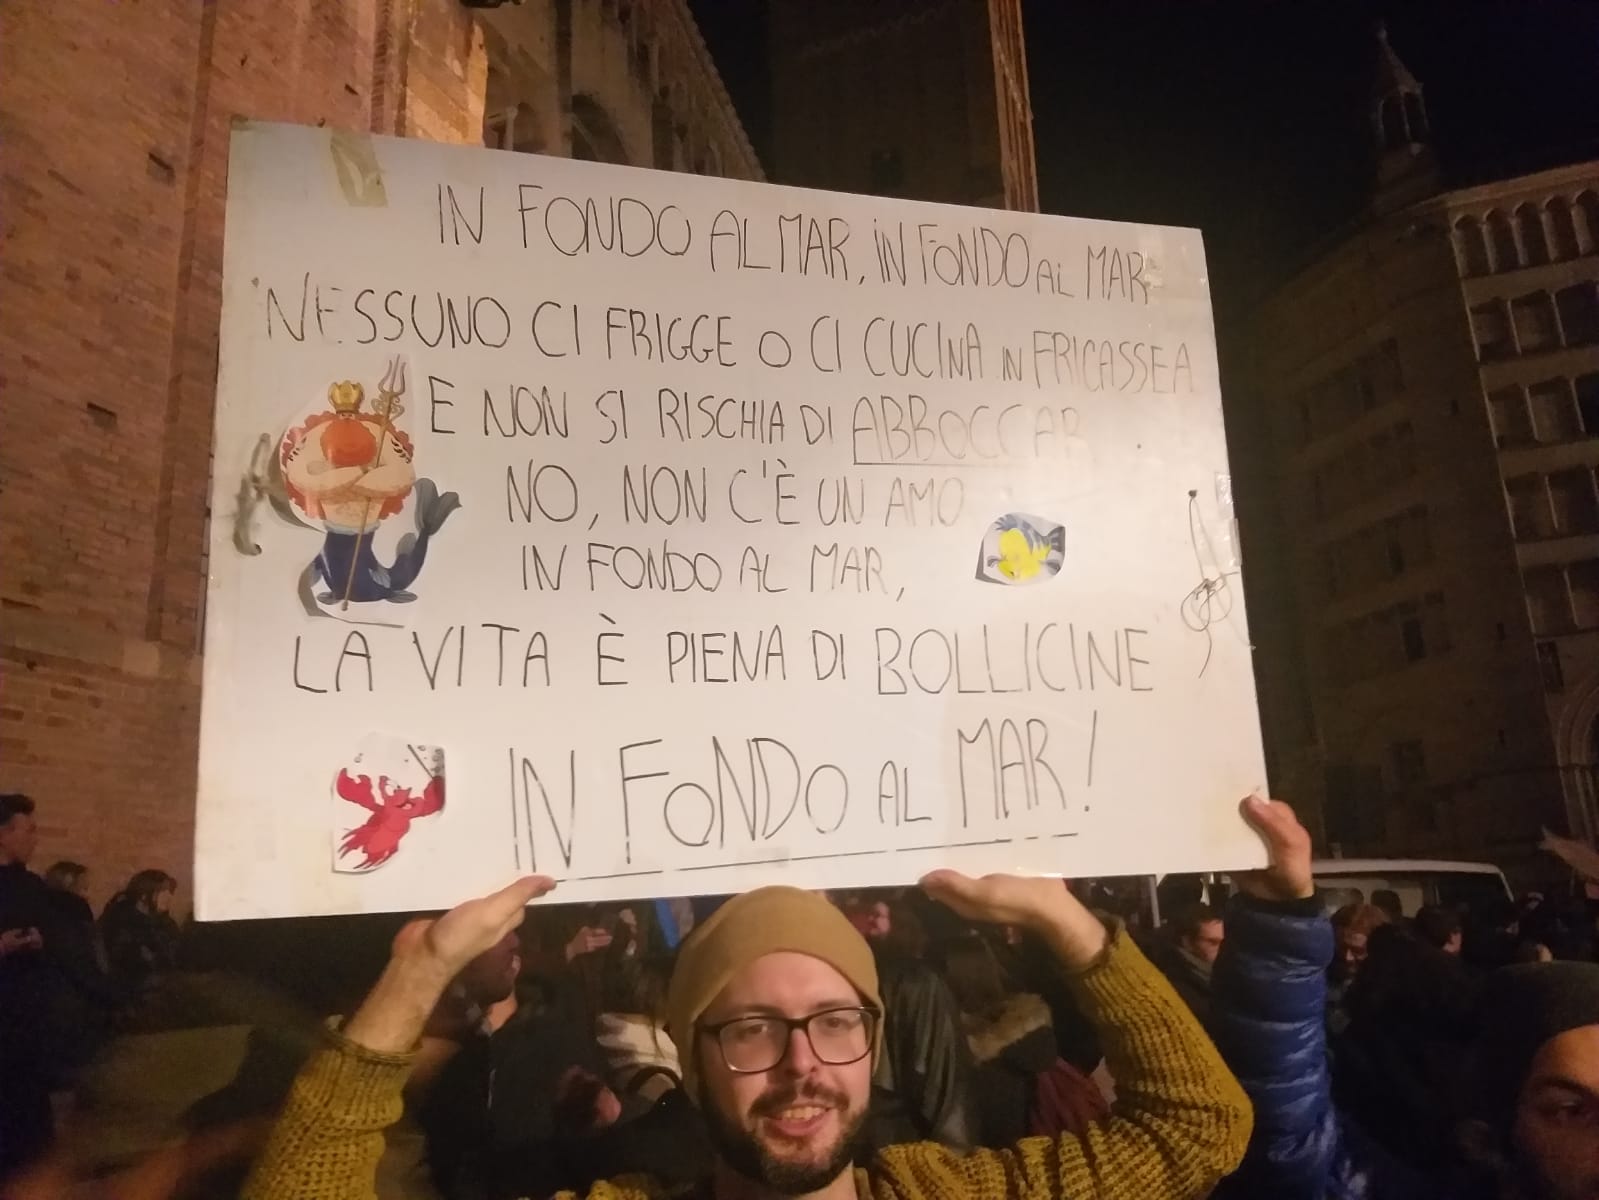 IN FONDO AL MAR, IN FONDO AL MAR
NESSUNO CI FRIGGE O CI CUCINA IN FRICASSEA
E NON SI RISCHIA DI ABBOCCAR
NO, NON C'È UN AMO
IN FONDO AL MAR,
LA VITA È PIENA DI BOLLICINE
IN FONDO AL MAR!